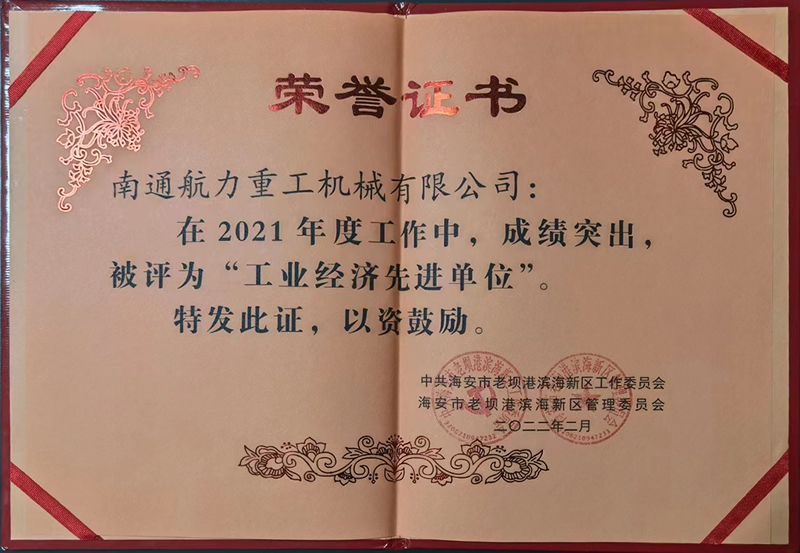 荣誉证书
南通航力重工机械有限公司：
在2021年度工作中，成绩突出，
被评为“工业经济先进单位”。
特发此证，以资鼓励。
中共海安市老坝港滨海新区工作委员会
海安市老坝港滨海新区管理委员会
二〇二二年二月